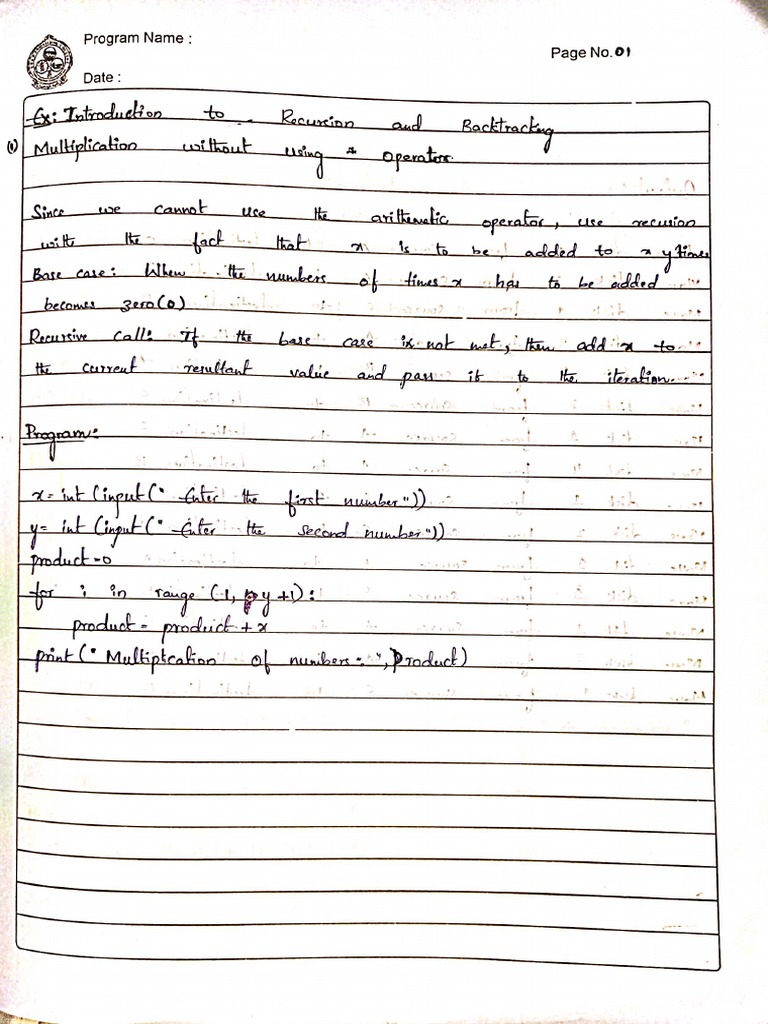 Program Name :
Page No. 01
Date :
Ex: Introduction to Recursion and Backtracking
(1) Multiplication without using * operator.
Since we cannot use the arithematic operator, use recusion
with the fact that x is to be added to x y times
Base case: When the numbers of times x has to be added
becomes zero(0)
Recursive Call: If the base case is not met, then add x to
the current resultant value and pass it to the iteration.
Program:
x = int (input(" Enter the first number"))
y= int (input(" Enter the second number"))
product=0
for i in range (1, y+1):
product = product + x
print(" Multiplcation of numbers: ", Product)